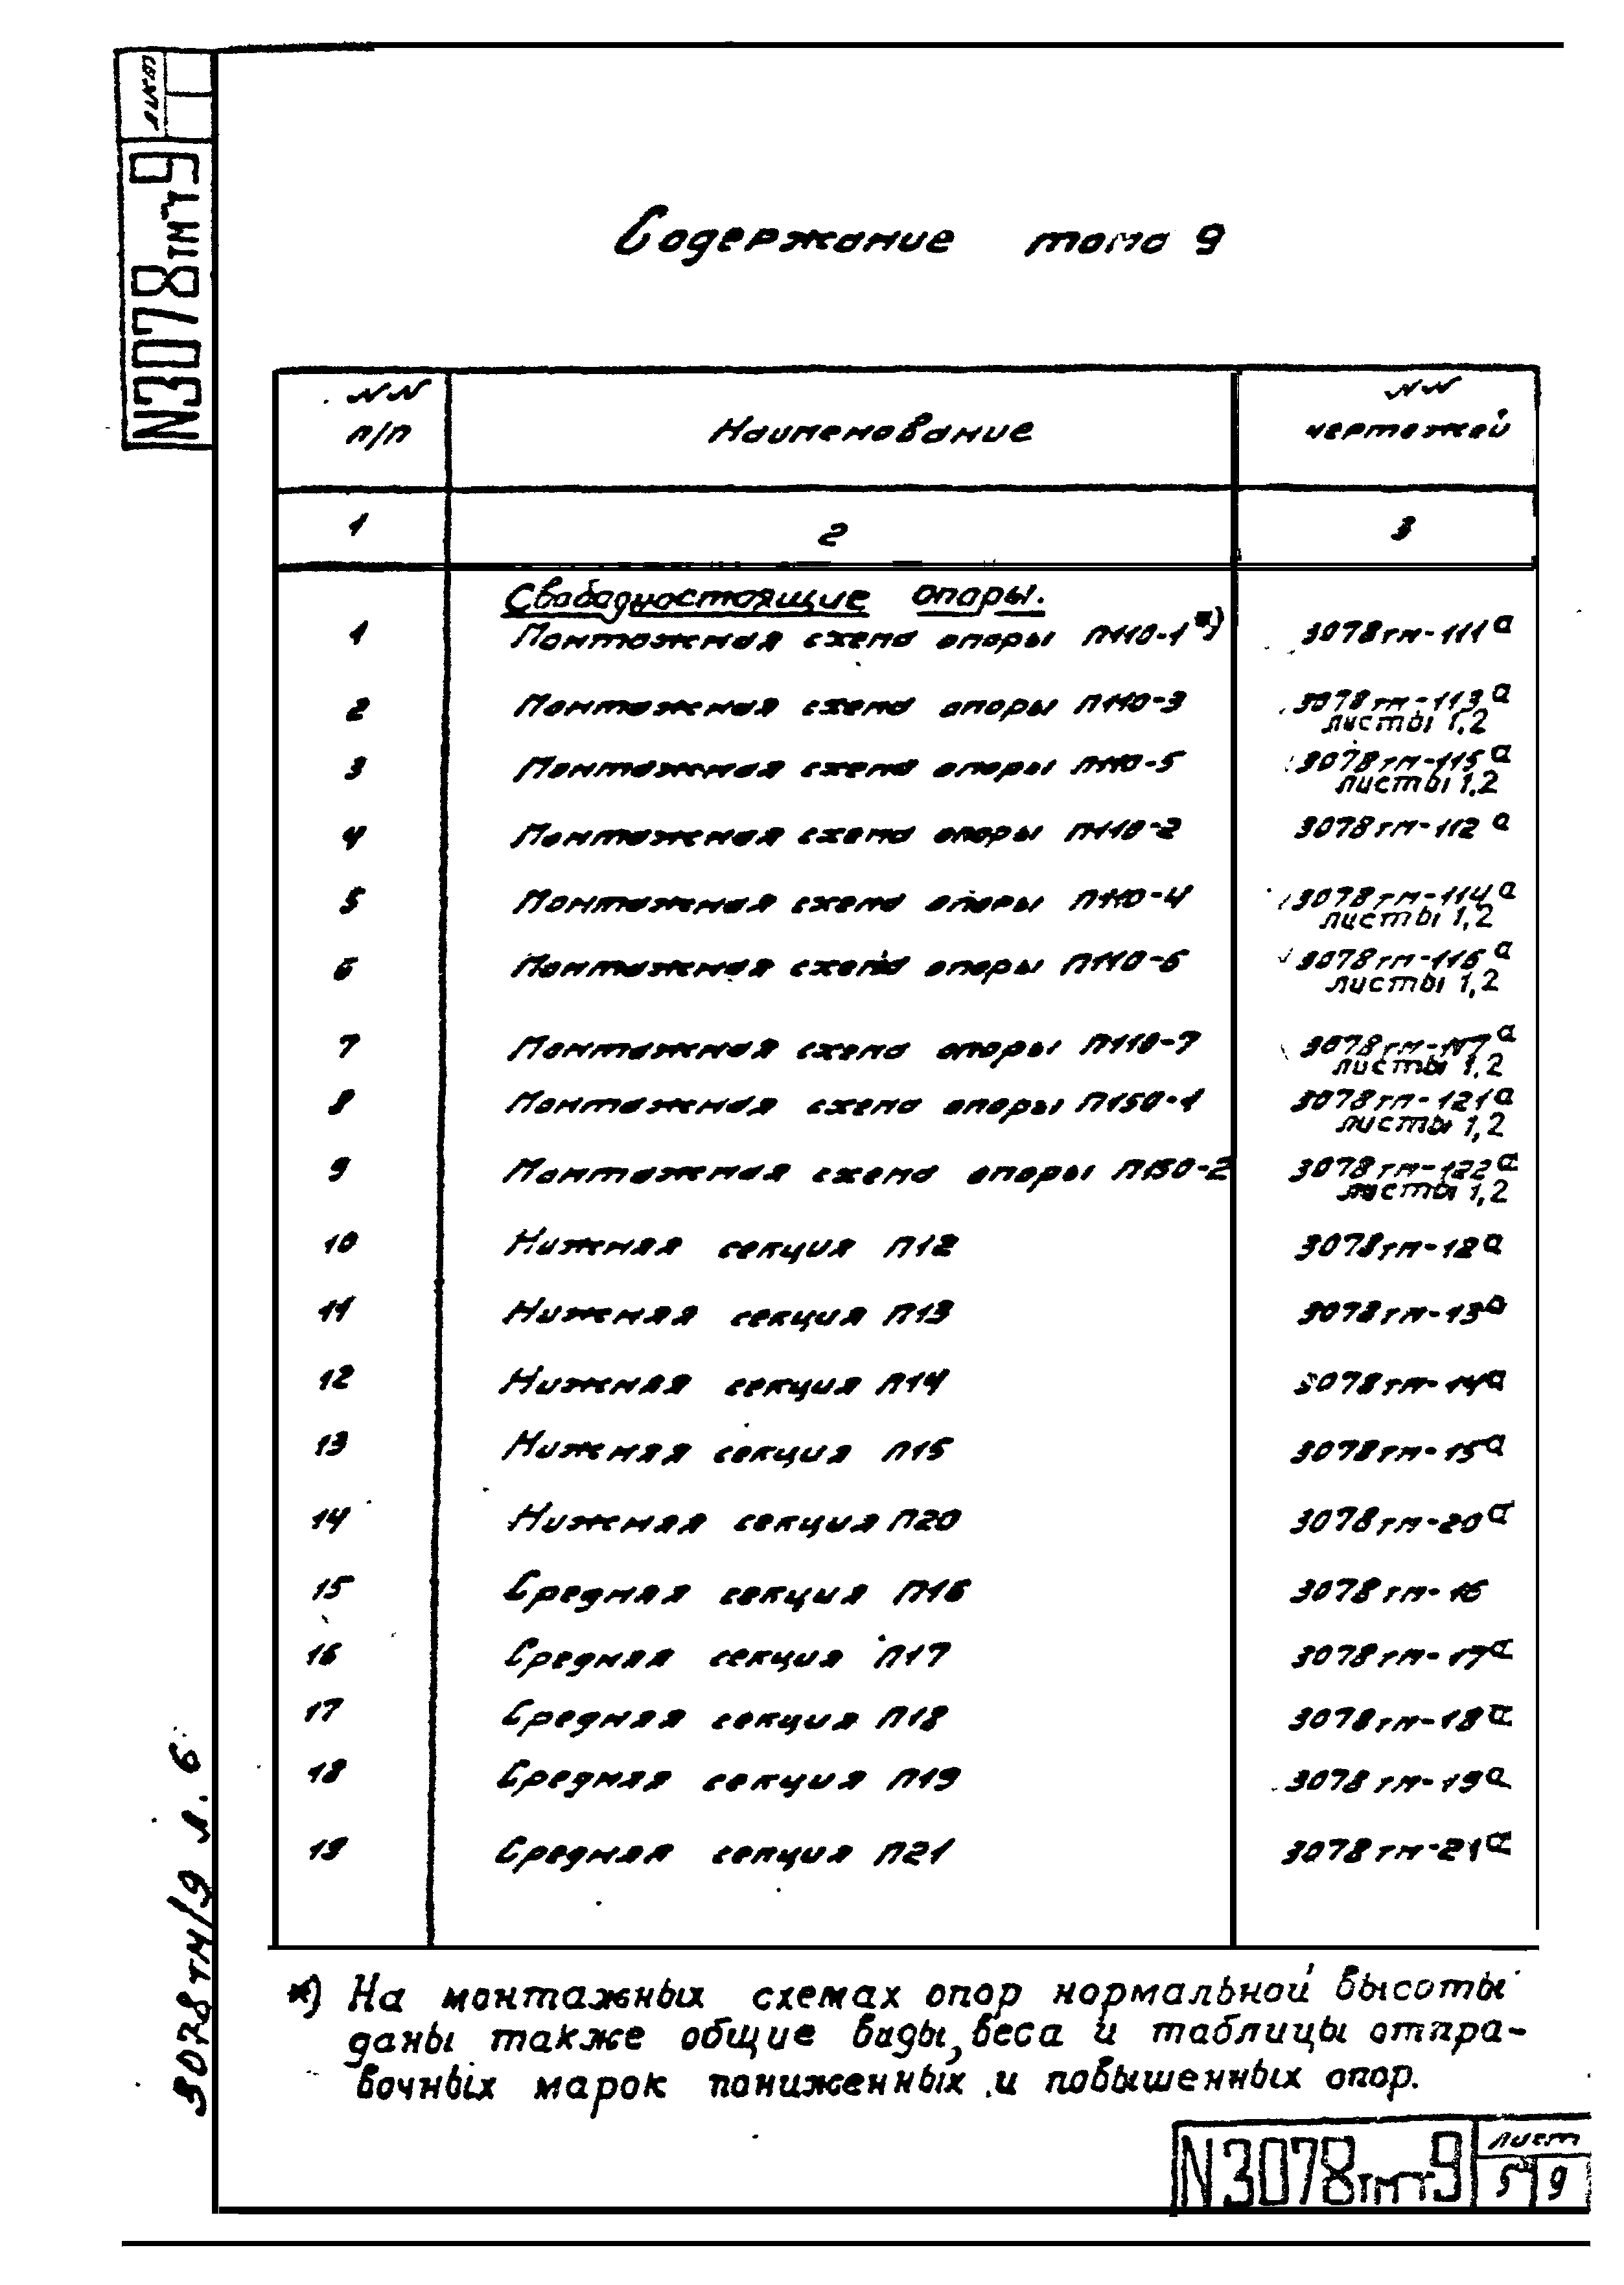 N3078тм т9
Содержание тома 9
NN п/п Наименование NN чертежей
1 2 3
Свободностоящие опоры.
1 Монтажная схема опоры П110-1*) 3078тм-111а
2 Монтажная схема опоры П110-3 3078тм-113а
листы 1,2
3 Монтажная схема опоры П110-5 3078тм-115а
листы 1,2
4 Монтажная схема опоры П110-2 3078тм-112а
5 Монтажная схема опоры П110-4 3078тм-114а
листы 1,2
6 Монтажная схема опоры П110-6 3078тм-116а
листы 1,2
7 Монтажная схема опоры П110-7 3078тм-117а
листы 1,2
8 Монтажная схема опоры П150-1 3078тм-121а
листы 1,2
9 Монтажная схема опоры П150-2 3078тм-122а
листы 1,2
10 Нижняя секция П12 3078тм-12а
11 Нижняя секция П13 3078тм-13а
12 Нижняя секция П14 3078тм-14а
13 Нижняя секция П15 3078тм-15а
14 Нижняя секция П20 3078тм-20а
15 Средняя секция П16 3078тм-16
16 Средняя секция П17 3078тм-17а
17 Средняя секция П18 3078тм-18а
18 Средняя секция П19 3078тм-19а
19 Средняя секция П21 3078тм-21а
*) На монтажных схемах опор нормальной высоты
даны также общие виды, веса и таблицы отпра-
вочных марок пониженных и повышенных опор.
3078тм/9 л. 6
N3078тм т9 лист
5 9